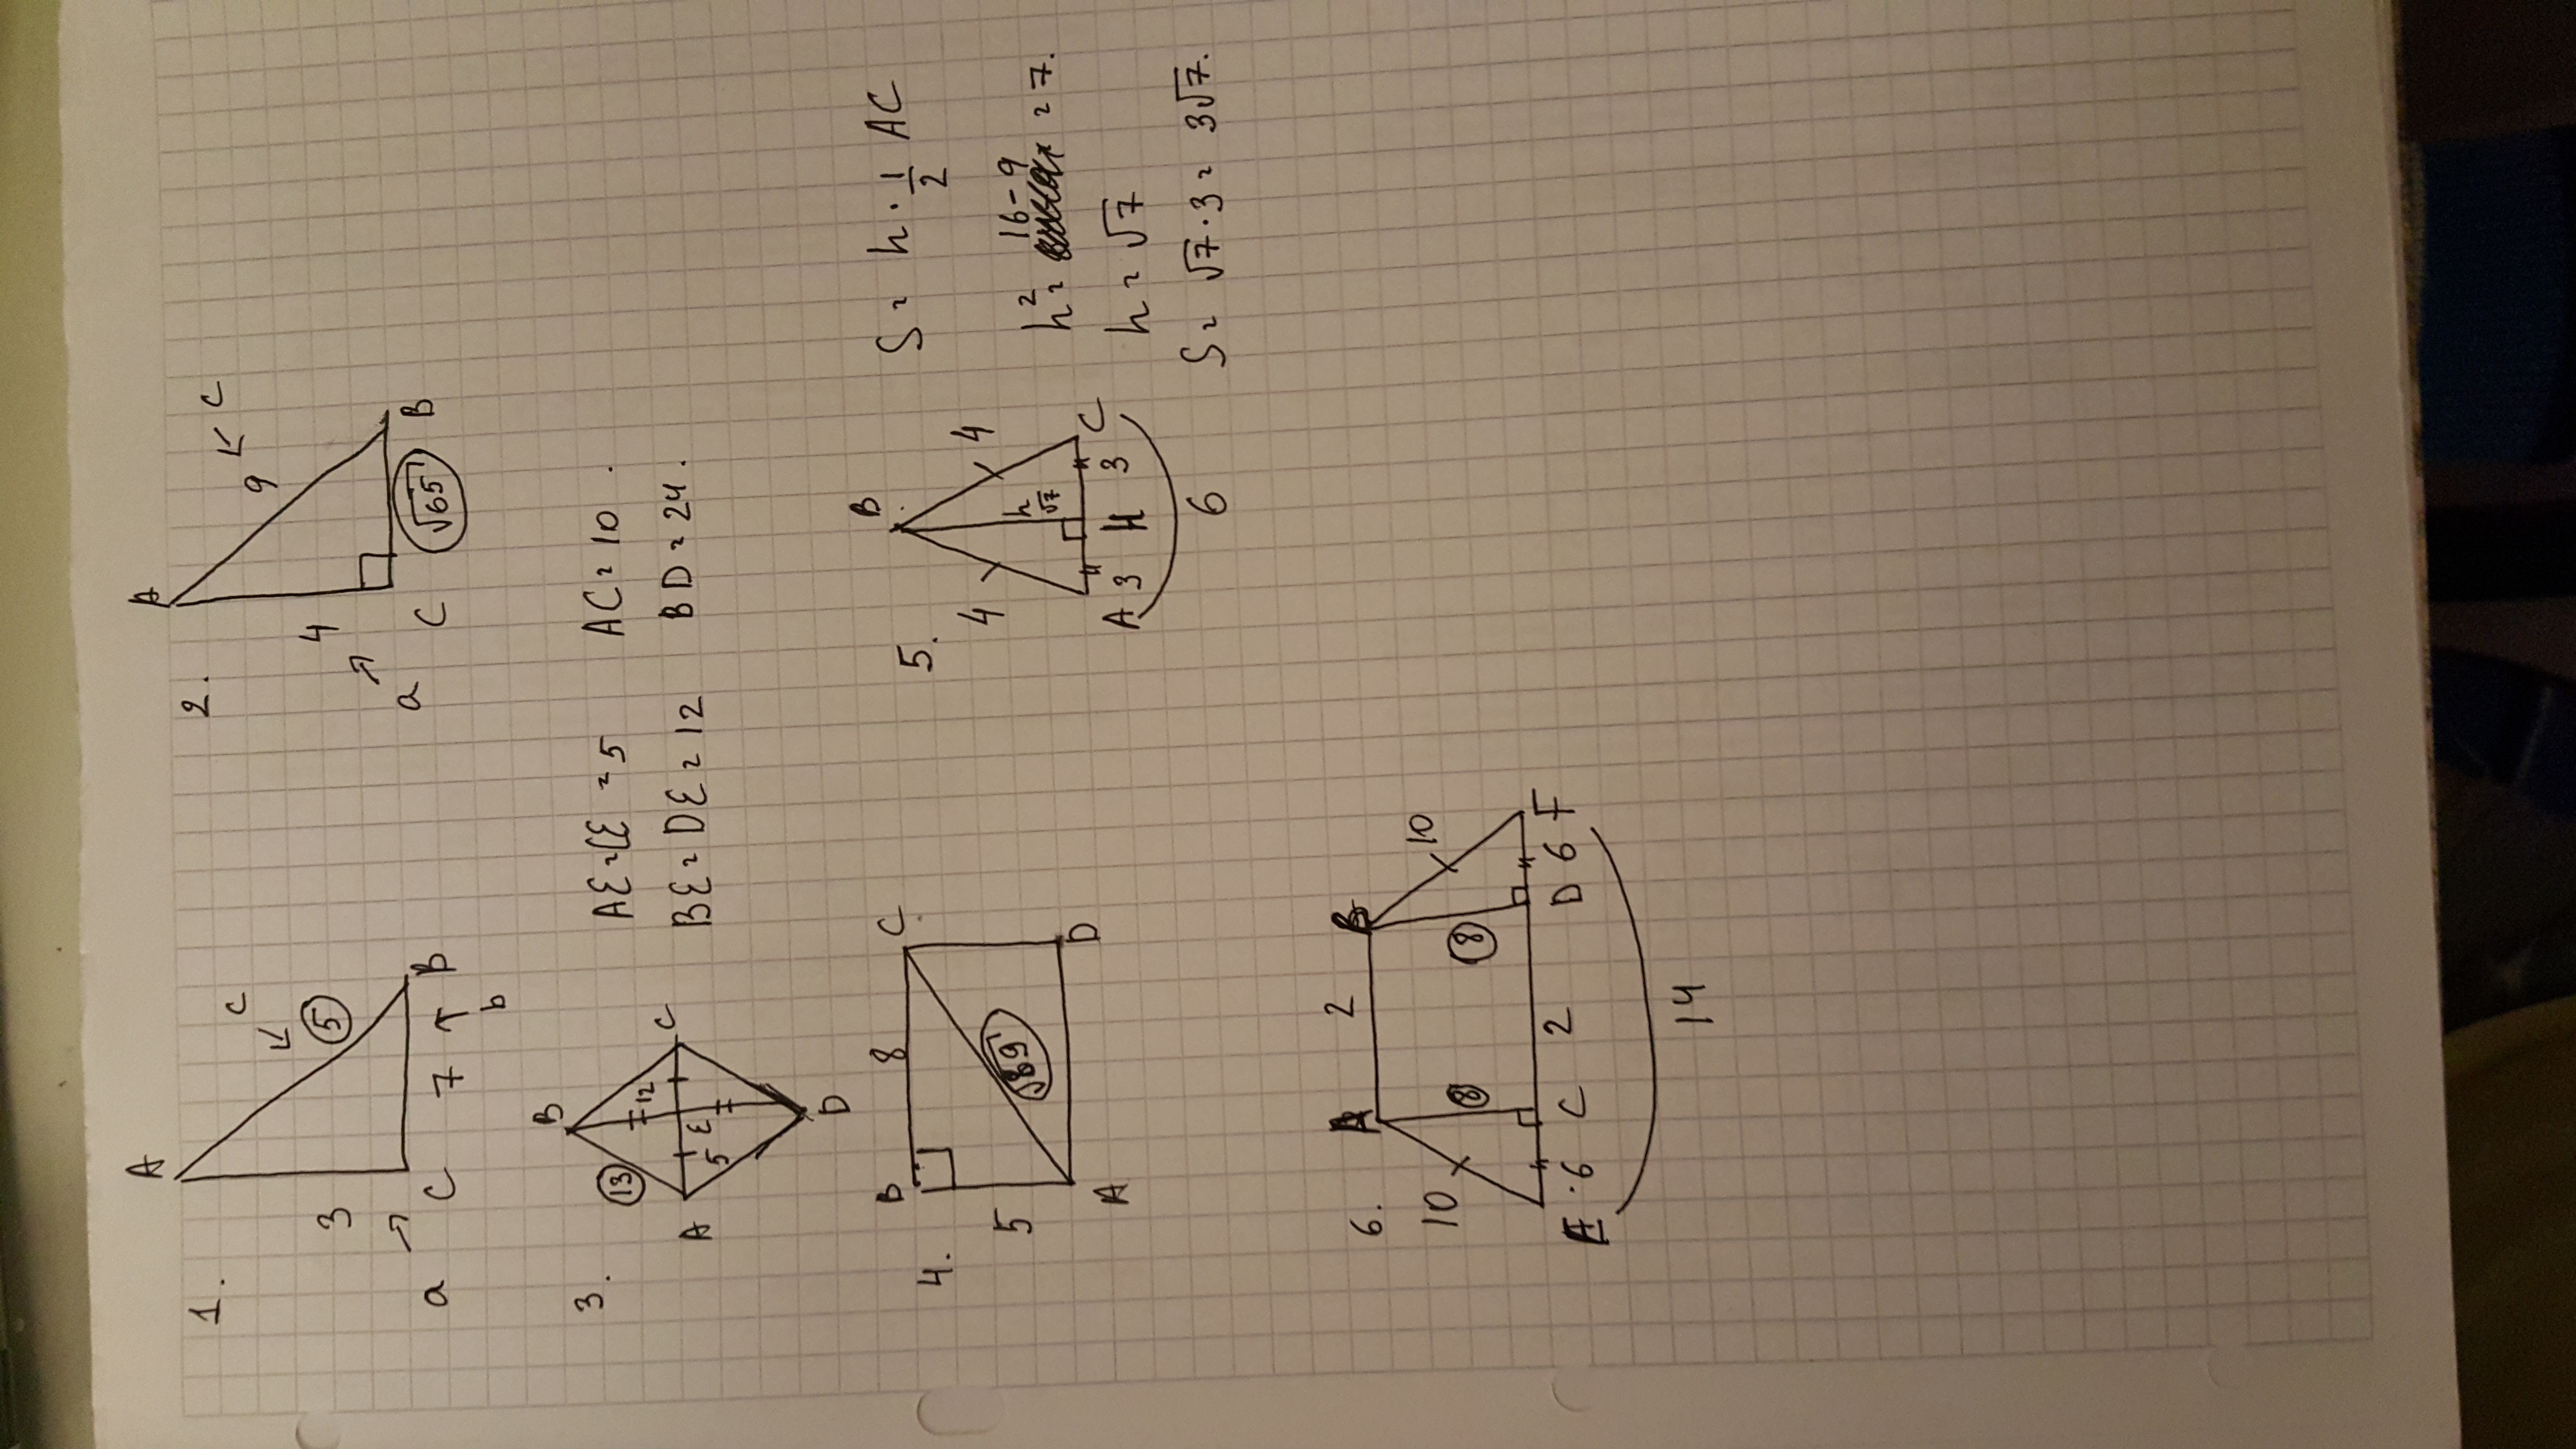 1.
A
c
3
5
a
C
7
B
b
2.
A
c
9
4
a
C
√65
B
3.
B
13
12
A
5
E
C
D
AE=CE=5 AC=10.
BE=DE=12 BD=24.
4.
B
8
C
5
√89
A
D
5.
B
4
4
h
√7
A
3
H
3
C
6
S= h · 1/2 AC
h²= 16-9 =7.
h=√7
S= √7·3= 3√7.
6.
A
2
B
10
8
8
10
6
C
2
D
6
F
14